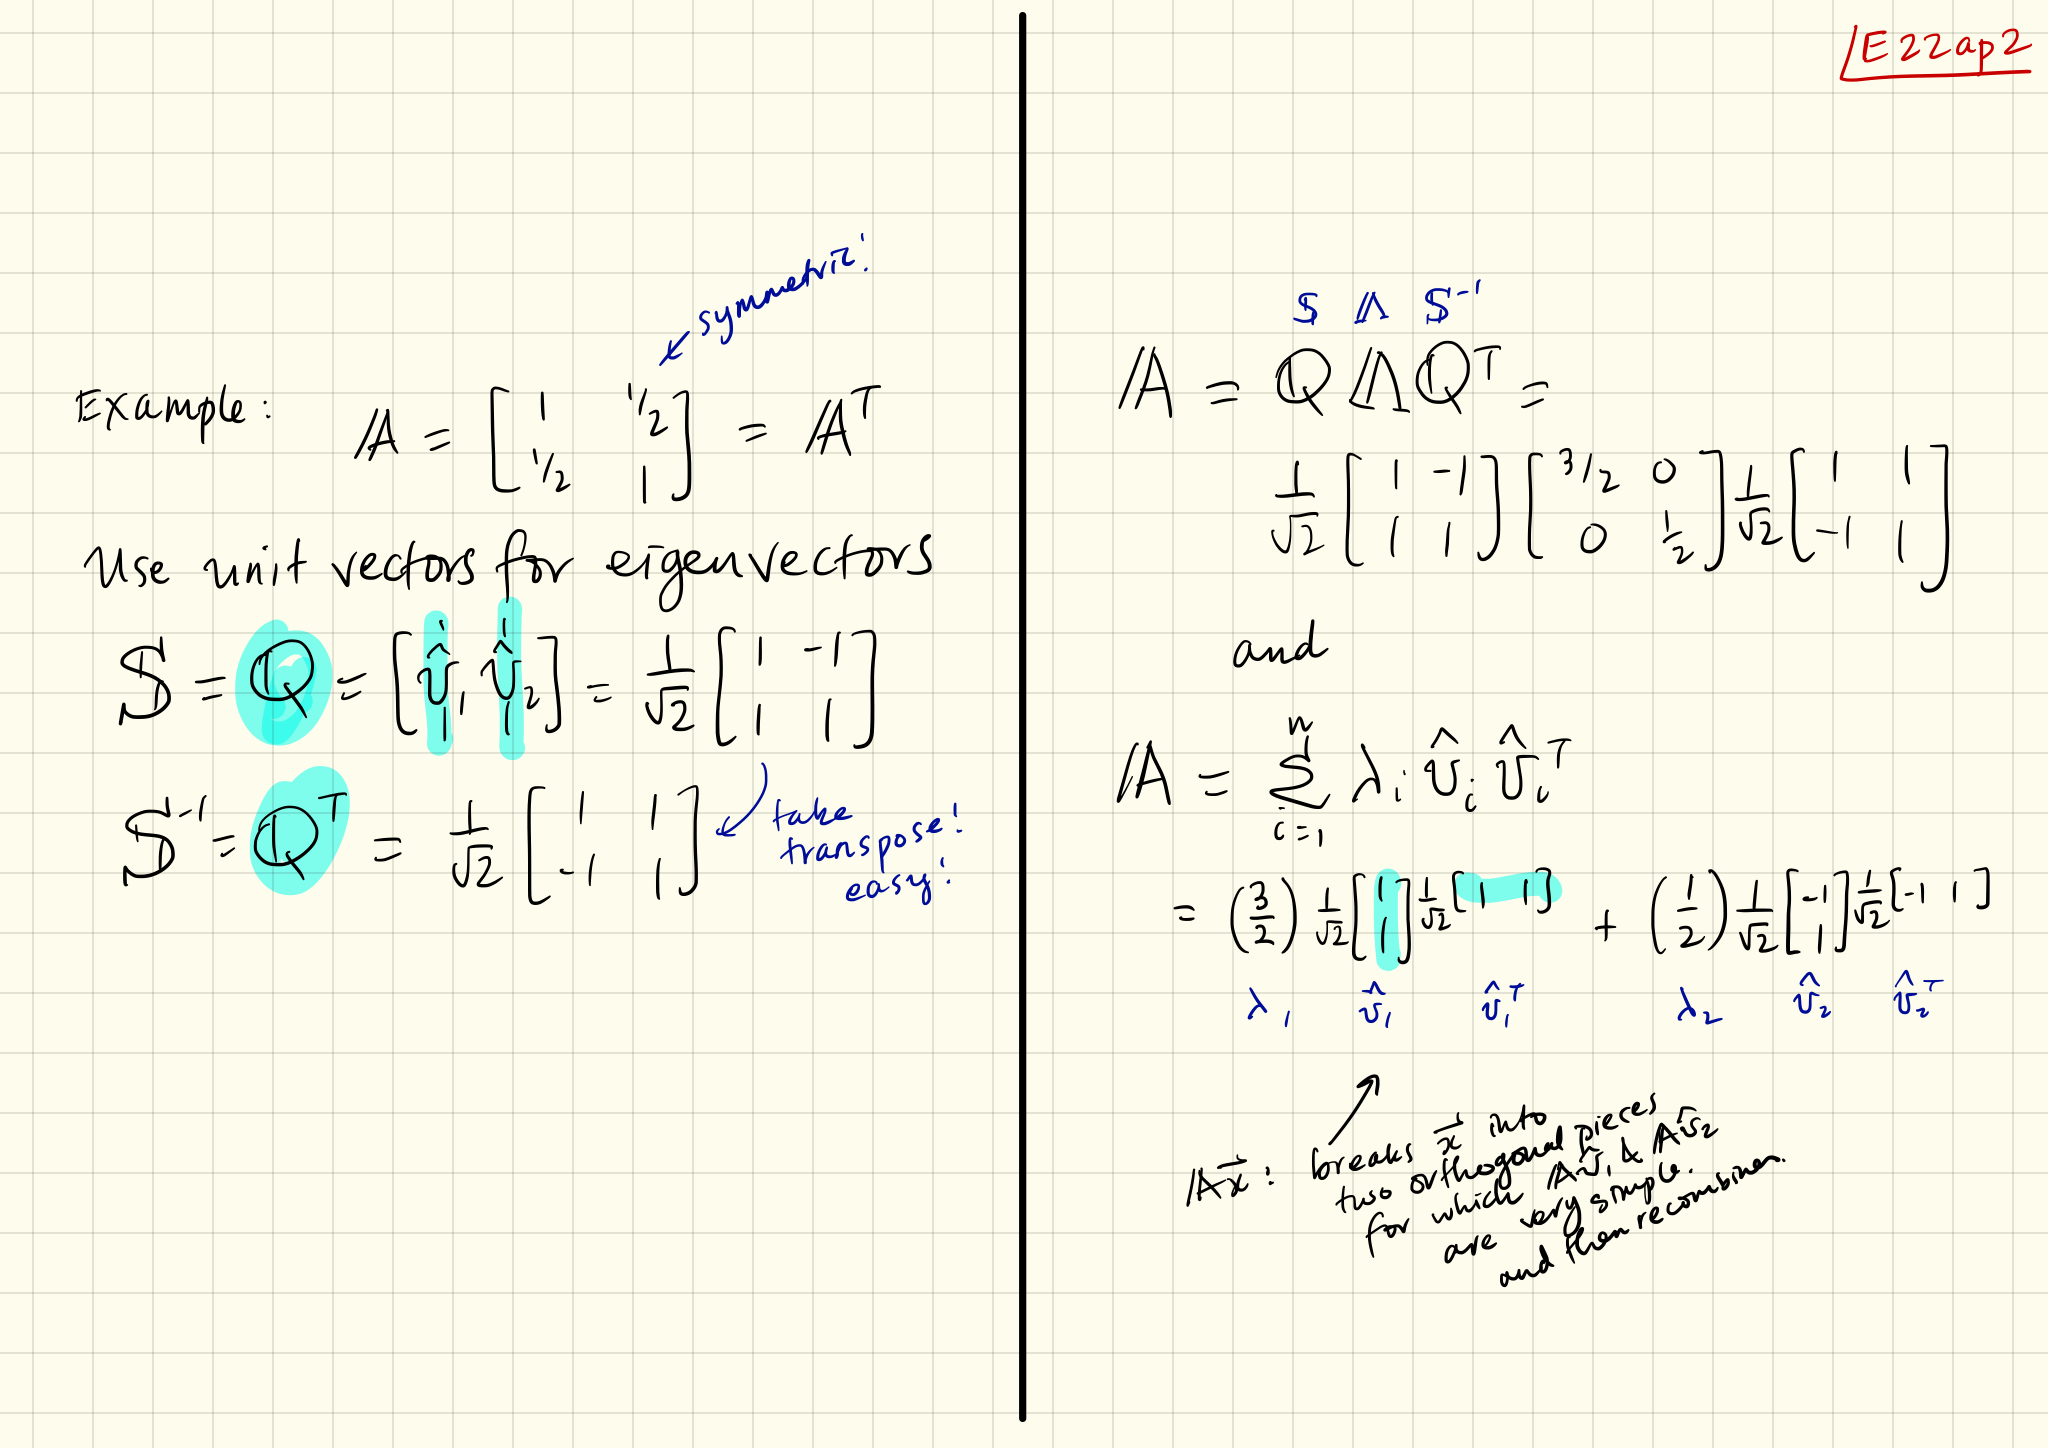 E22ap2
symmetric!
Example: A = [1 1/2; 1/2 1] = A^T
Use unit vectors for eigenvectors
S = Q = [v̂₁ v̂₂] = 1/√2 [1 -1; 1 1]
S⁻¹ = Q^T = 1/√2 [1 1; -1 1]
take
transpose!
easy!
S Λ S⁻¹
A = Q Λ Q^T =
1/√2 [1 -1; 1 1] [3/2 0; 0 1/2] 1/√2 [1 1; -1 1]
and
A = Σ_{i=1}^{n} λᵢ v̂ᵢ v̂ᵢ^T
= (3/2) 1/√2 [1; 1] 1/√2 [1 1] + (1/2) 1/√2 [-1; 1] 1/√2 [-1 1]
λ₁ v̂₁ v̂₁^T λ₂ v̂₂ v̂₂^T
Ax⃗ : breaks x⃗ into
two orthogonal pieces
for which Av̂₁ & Av̂₂
are very simple.
and then recombines.